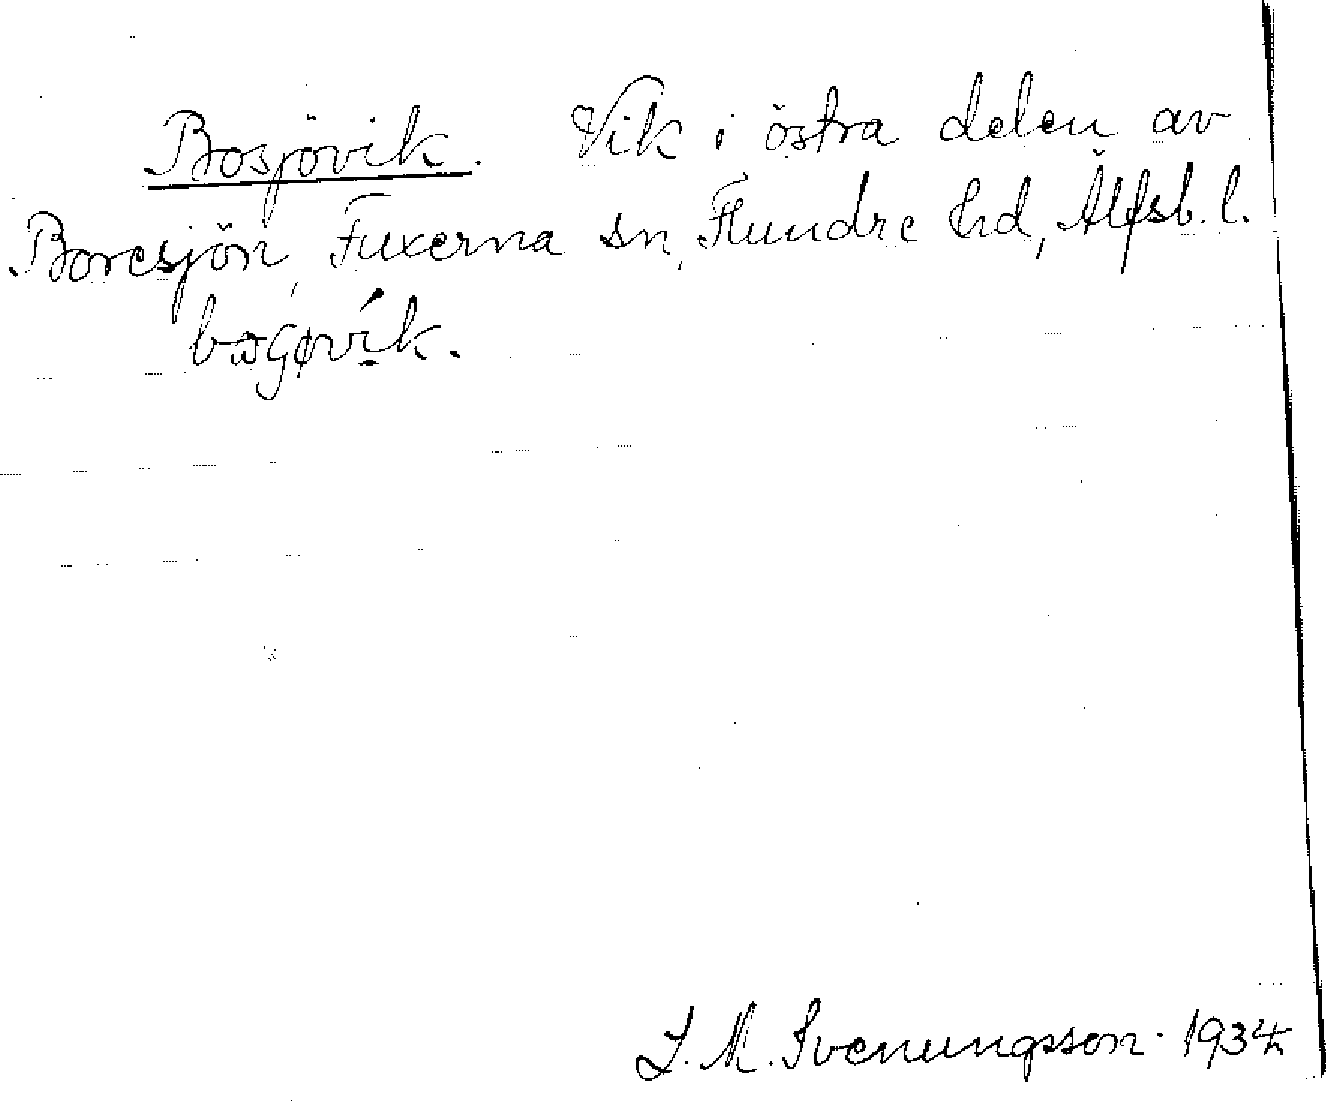 Bosjövik. Vik i östra delen av
Boresjön, Fuxerna sn, Flundre hd, Älfsb. l.
S. M. Svenungsson. 1934